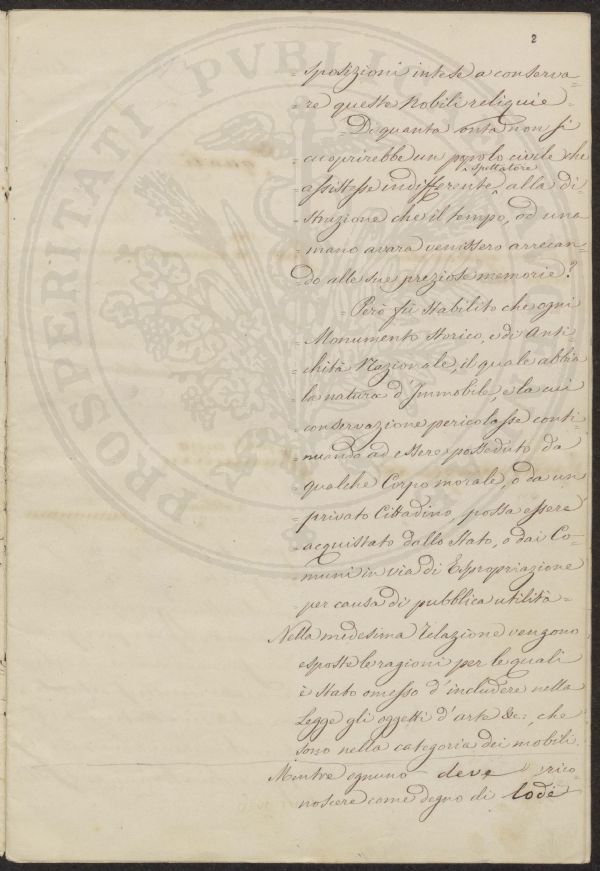 2
=sposizioni intese a conserva=
=re queste Nobili reliquie=
=Di quanta onta non si
=cuoprirebbe un popolo civile che
spettatore
=assistesse indifferente ^ alla di=
=struzione che il tempo, od una
=mano avara venissero arrecan=
=do alle sue preziose memorie?
=Però fu stabilito che ogni
=Monumento storico, e di Anti=
=chità Nazionale, il quale abbia
=la natura d'Immobile, e la cui
=conservazione pericolasse conti=
=nuando ad essere posseduto da
=qualche Corpo morale, o da un
=privato Cittadino, possa essere
=acquistato dallo Stato, o dai Co=
=muni in via di Espropriazione
=per causa di pubblica utilità=
Nella medesima Relazione vengono
esposte le ragioni per le quali
è stato omesso d'includere nella
Legge gli oggetti d'arte &c:, che
sono nella categoria dei mobili.
Mentre ognuno deve rico=
noscere come degno di lode
PROSPERITATI PVBLICAE